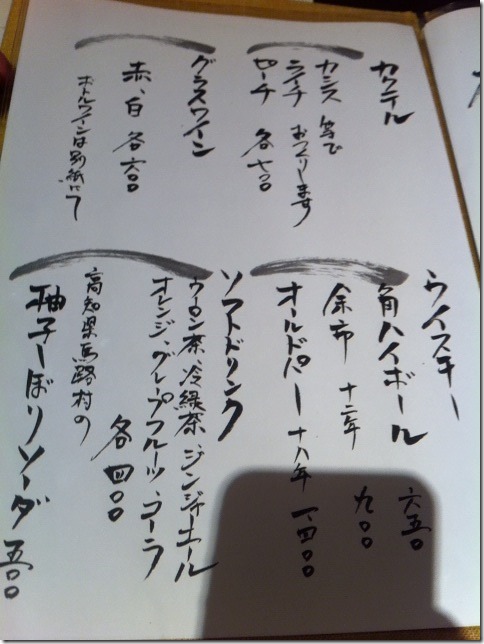 カクテル
カシス 等で
ライチ おつくりします
ピーチ 各七〇〇
グラスワイン
赤、白 各六〇〇
ボトルワインは別紙にて
ウイスキー
角ハイボール 六五〇
余市 十二年 九〇〇
オールドパー 十八年 一四〇〇
ソフトドリンク
ウーロン茶、冷緑茶、ジンジャーエール
オレンジ、グレープフルーツ、コーラ
各四〇〇
高知県馬路村の
柚子しぼりソーダ 五〇〇